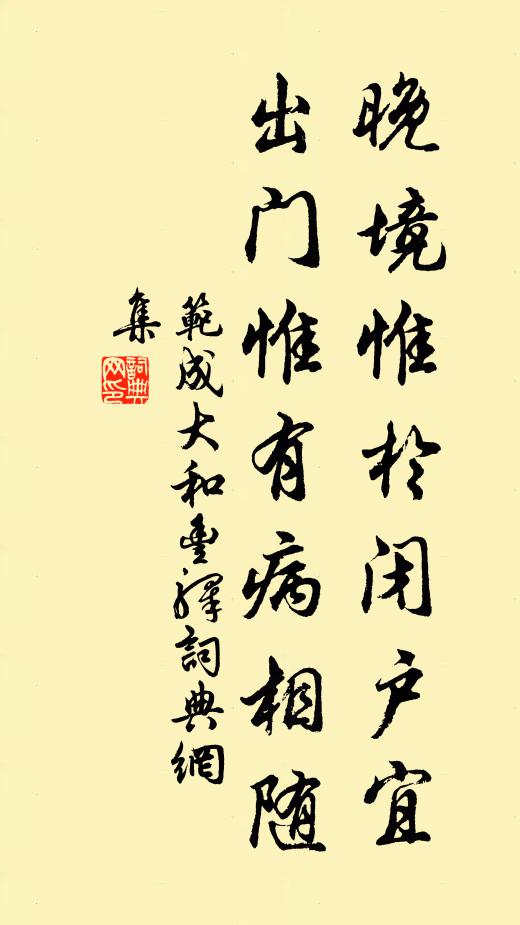 晚境惟於闭户宜
出门惟有病相随
範成大和豐驛詞典網
集
詞典
网印